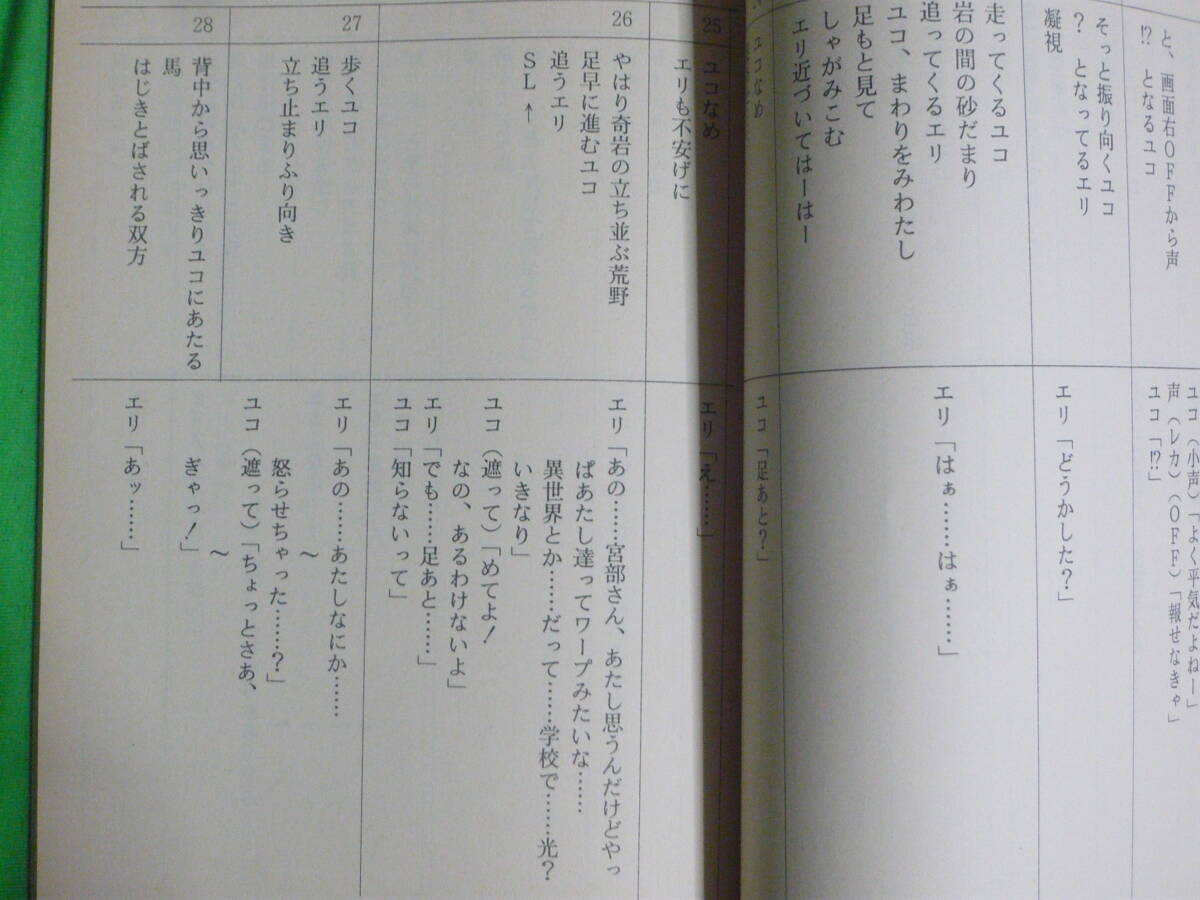 と、画面右OFFから声
!? となるユコ
ユコ(小声)「よく平気だよねー」
声(レカ)(OFF)「報せなきゃ」
ユコ「!?」
そっと振り向くユコ
? となってるエリ
凝視
エリ「どうかした?」
走ってくるユコ
岩の間の砂だまり
追ってくるエリ
ユコ、まわりをみわたし
足もと見て
しゃがみこむ
エリ近づいてはーはー
エリ「はぁ……はぁ……」
ユコなめ
ユコ「足あと?」
25
ユコなめ
エリも不安げに
エリ「え……」
26
やはり奇岩の立ち並ぶ荒野
足早に進むユコ
追うエリ
SL ↑
エリ「あの……宮部さん、あたし思うんだけどやっ
ぱあたし達ってワープみたいな……
異世界とか……だって……学校で……光?
いきなり」
ユコ(遮って)「めてよ!
なの、あるわけないよ」
エリ「でも……足あと……」
ユコ「知らないって」
27
歩くユコ
追うエリ
立ち止まりふり向き
エリ「あの……あたしなにか……
〜
怒らせちゃった……?」
ユコ(遮って)「ちょっとさあ、
〜
ぎゃっ!」
28
背中から思いっきりユコにあたる
馬
はじきとばされる双方
エリ「あッ……」